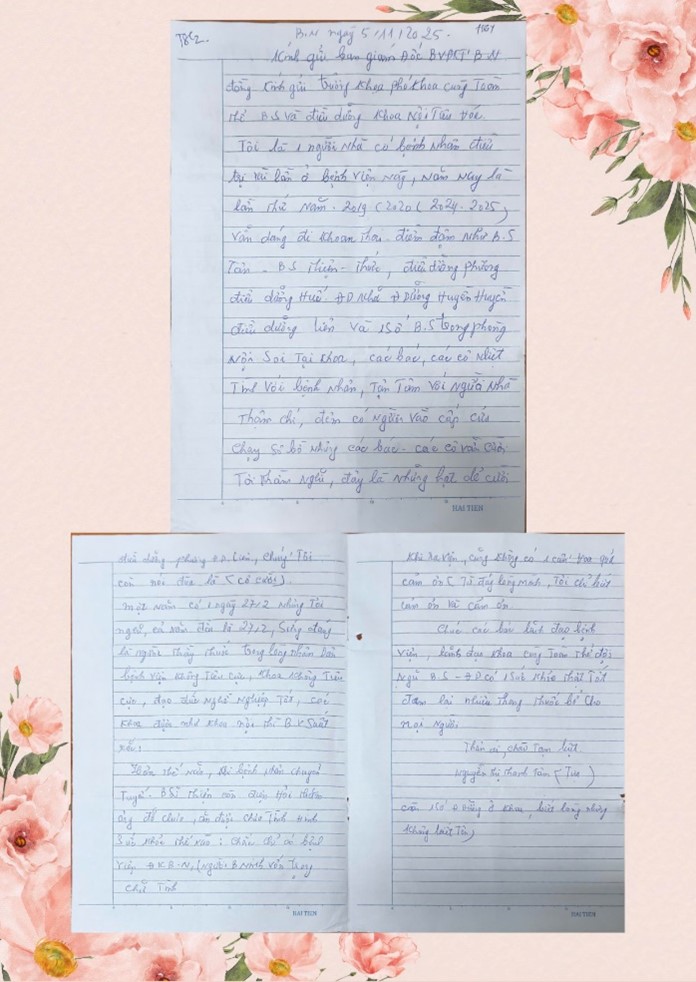 B.N ngày 5/11/2025.
Kính gửi ban giám Đốc BVĐKT B N
đồng kính gửi trưởng khoa phó khoa cùng Toàn
thể B.S và điều dưỡng khoa Nội Tiêu
Tôi là 1 người nhà có bệnh nhân điều
trị lần ở bệnh viện này, năm nay là
lần thứ năm. 2019 (2020 ( 2024 - 2025)
vẫn dáng đi khoan thai điềm đạm như B.S
B.S Thiện - Thức, điều dưỡng phương
điều dưỡng Huế Đ D Nhã Đ Dưỡng Huyền Huyền
điều dưỡng liên và 1 số B.S trong phòng
Nội Soi Tại khoa, các bác, các cô nhiệt
Tình với bệnh nhân, Tận Tâm với người nhà
Thậm chí, đêm có người vào cấp cứu
chạy nhưng các bác - các cô vẫn cười
Tôi Thầm nghĩ, đây là những hạt để cười
HẢI TIẾN
điều dưỡng phương Đ.D liên, chúng Tôi
còn nói đùa là (cô cười).
một năm có 1 ngày 27.2 nhưng Tôi
nghĩ, cả năm đều là 27.2, Sứng đáng
là người thầy thuốc trong lòng nhân dân
bệnh viện không Tiêu cực, khoa không Tiêu
cực, đạo đức nghề nghiệp Tốt, các
khoa đều như khoa nội thì B.V Suất
Hơn Thế nữa, khi bệnh nhân chuyển
Tuyến. BS Thiện còn Hỏi
Tình Hình
Sức khỏe thế nào: chắc chỉ có bệnh
viện Đ K B.N, (người BNinh vốn Trọng
chữ Tình
HẢI TIẾN
Khi ra viện, cũng không có 1 cân
cảm ơn (Từ đáy lòng mình, Tôi chỉ biết
cảm ơn và cảm ơn.
Chúc các bác lãnh đạo bệnh
viện, lãnh đạo khoa cùng Toàn Thể đội
Ngũ B.S - Đ.D có 1 Sức khỏe thật Tốt
đem lại nhiều Thang thuốc bổ cho
mọi người.
Thân ái, chào Tạm biệt
Nguyễn Thị Thanh Tâm
còn 1 số Đ Dưỡng ở khoa, biết
không biết Tên)
HẢI TIẾN